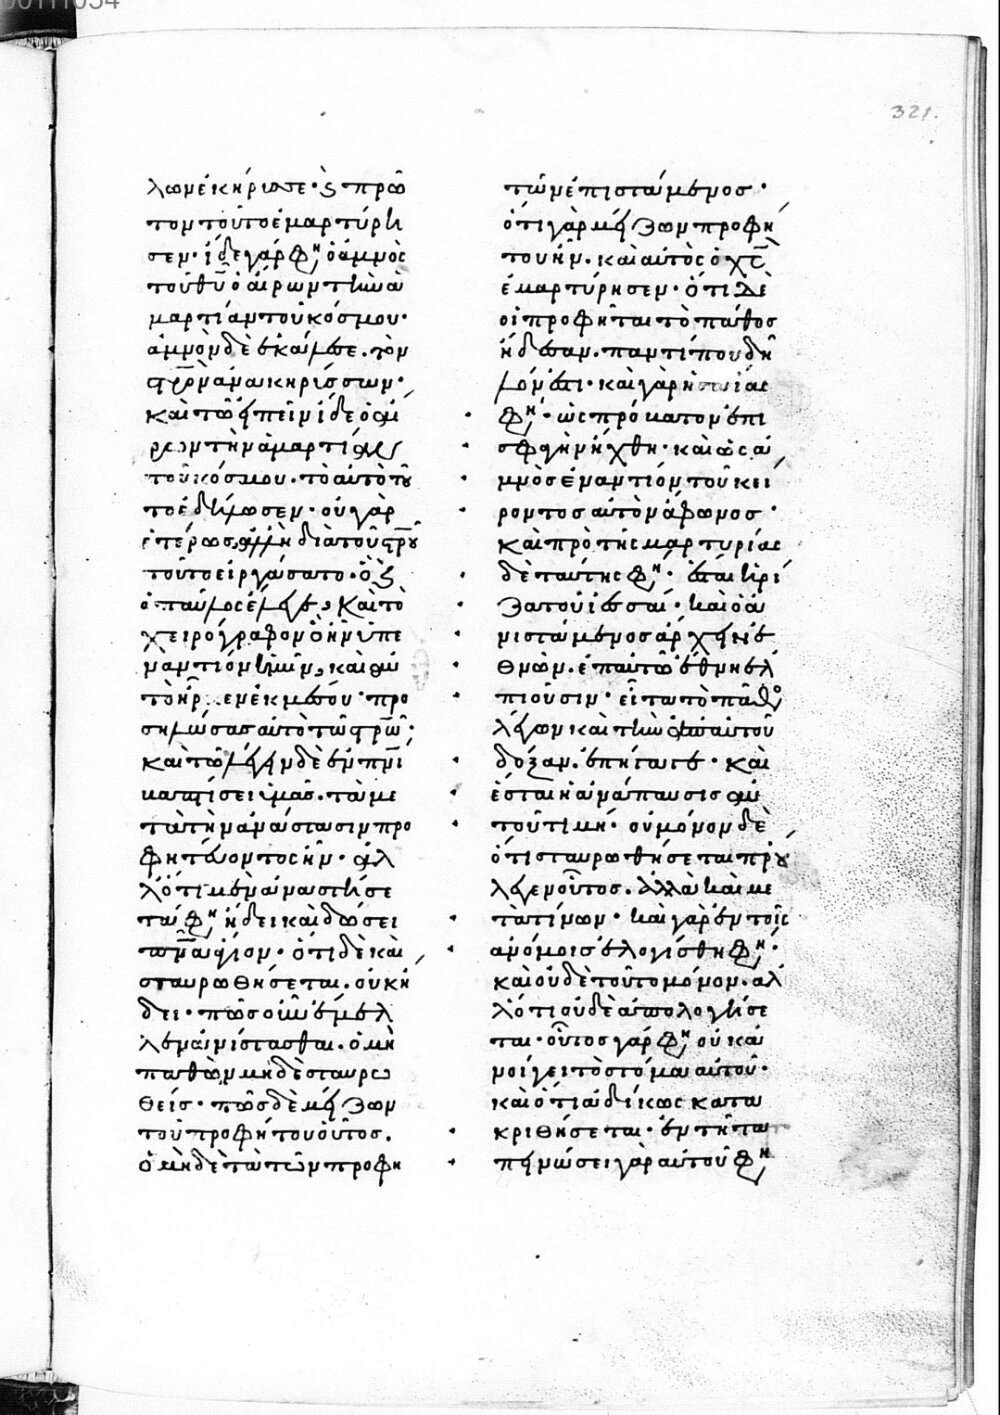 321.
λων ἐκήρυσσε· ὃς πρῶ
τον τοῦτο ἐμαρτύρη
σεν· ἴδε γάρ φη, ὁ ἀμνὸς
τοῦ θυ ὁ αἴρων τὴν ἁ
μαρτίαν τοῦ κόσμου·
ἀμνὸν δὲ ἐκάλεσε. τὸν
στρον ἀνακηρύσσων·
καὶ τῶ εἰπεῖν ἴδε ὁ αἴ
ρων τὴν ἁμαρτίαν
τοῦ κόσμου. τὸ αὐτὸ τοῦ
το ἐδήλωσεν· οὐ γὰρ
ἑτέρως, ἀλλ' ἢ διὰ τοῦ στρου
τοῦτο εἰργάσατο·
καὶ τὸ
χειρόγραφον ὃ ἦν ὑπε
ναντίον ἡμῖν, καὶ αὐ
τὸ ἦρεν ἐκ μέσου· προ
σηλώσας αὐτὸ τῶ στρω·
καὶ τῶ λέγειν δὲ ἐν πνι
βαπτίσει ὑμᾶς. τὰ με
τὰ τὴν ἀνάστασιν προ
φητεύοντος ἦν· ἀλ
λ' ὅτι μὲν ἀναστήσε
ται φη, ἤδει καὶ δώσει
πνα ἅγιον· ὅτι δὲ καὶ
σταυρωθήσεται. οὐκ ἤ
δει· πῶς οὖν ἔμελ
λεν ἀνίστασθαι. ὁ μὴ
παθὼν μηδὲ σταυρω
θείς· πῶς δὲ μείζων
τοῦ προφήτου οὗτος.
ὁ μηδὲ τὰ τῶν προφη
τῶν ἐπιστάμενος·
ὅτι γὰρ μείζων προφή
του ἦν. καὶ αὐτὸς ὁ χς
ἐμαρτύρησεν· ὅτι δὲ
οἱ προφῆται τὸ πάθος
ἤδεσαν. παντί που δῆ
λόν ἐστι· καὶ γὰρ ἡσαίας
φη· ὡς πρόβατον ἐπὶ
σφαγὴν ἤχθη· καὶ ὡς ἀ
μνὸς ἐναντίον τοῦ κεί
ροντος αὐτὸν ἄφωνος·
καὶ πρὸ τῆς μαρτυρίας
δὲ ταύτης φη· ἔσται ἡ ῥί
ζα τοῦ ἰεσσαί· καὶ ὁ ἀ
νιστάμενος ἄρχειν ἐ
θνῶν. ἐπ' αὐτῶ ἔθνη ἐλ
πιοῦσιν· εἶτα τὸ πάθος
λέγων καὶ τὴν ἐπ' αὐτοῦ
δόξαν. ἐπήγαγε· καὶ
ἔσται ἡ ἀνάπαυσις αὐ
τοῦ τιμή· οὐ μόνον δὲ
ὅτι σταυρωθήσεται προ
λέγει οὗτος. ἀλλὰ καὶ με
τὰ τίνων· καὶ γὰρ ἐν τοῖς
ἀνόμοις ἐλογίσθη φη·
καὶ οὐδὲ τοῦτο μόνον. ἀλ
λ' ὅτι οὐδὲ ἀπολογήσε
ται· οὗτος γάρ φη οὐκ ἀ
νοίγει τὸ στόμα αὐτοῦ·
καὶ ὅτι ἀδίκως κατα
κριθήσεται· ἐν τῆ τα
πεινώσει γὰρ αὐτοῦ φη